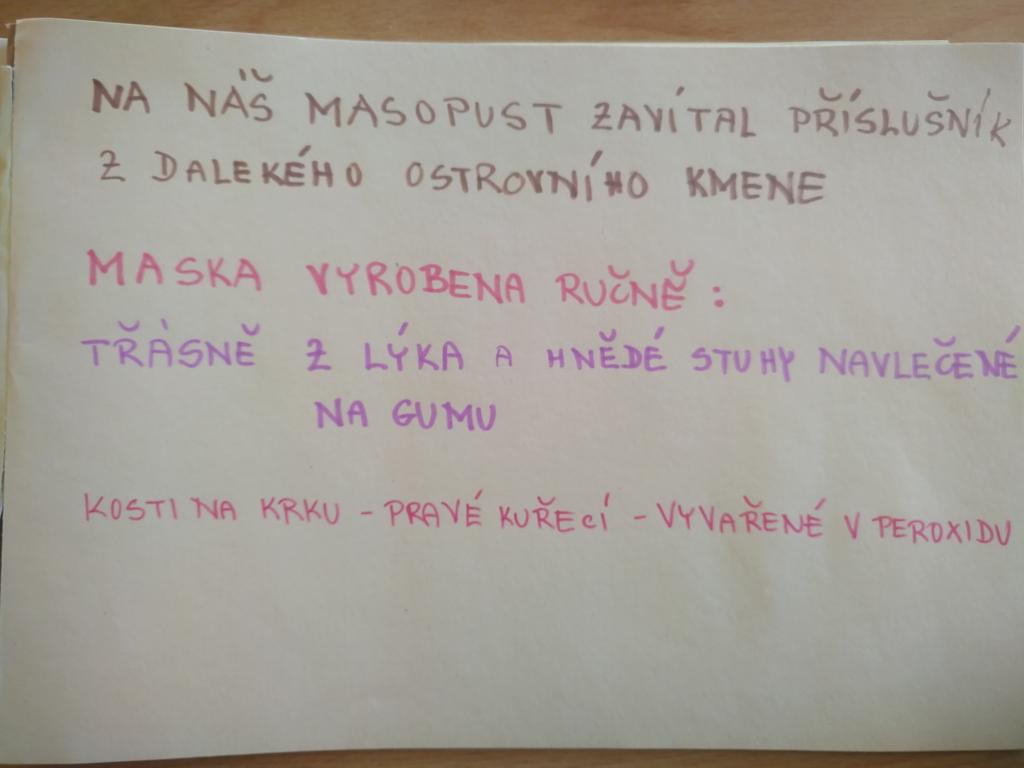 NA NÁŠ MASOPUST ZAVÍTAL PŘÍSLUŠNÍK
Z DALEKÉHO OSTROVNÍHO KMENE
MASKA VYROBENA RUČNĚ:
TŘÁSNĚ Z LÝKA A HNĚDÉ STUHY NAVLEČENÉ
NA GUMU
KOSTI NA KRKU - PRAVÉ KUŘECÍ - VYVAŘENÉ V PEROXIDU